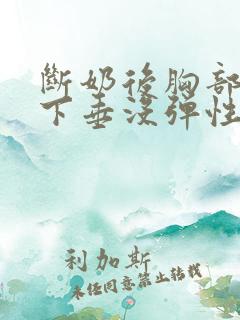 斷奶後胸部
下垂沒彈性
利加斯
未经同意禁止转载